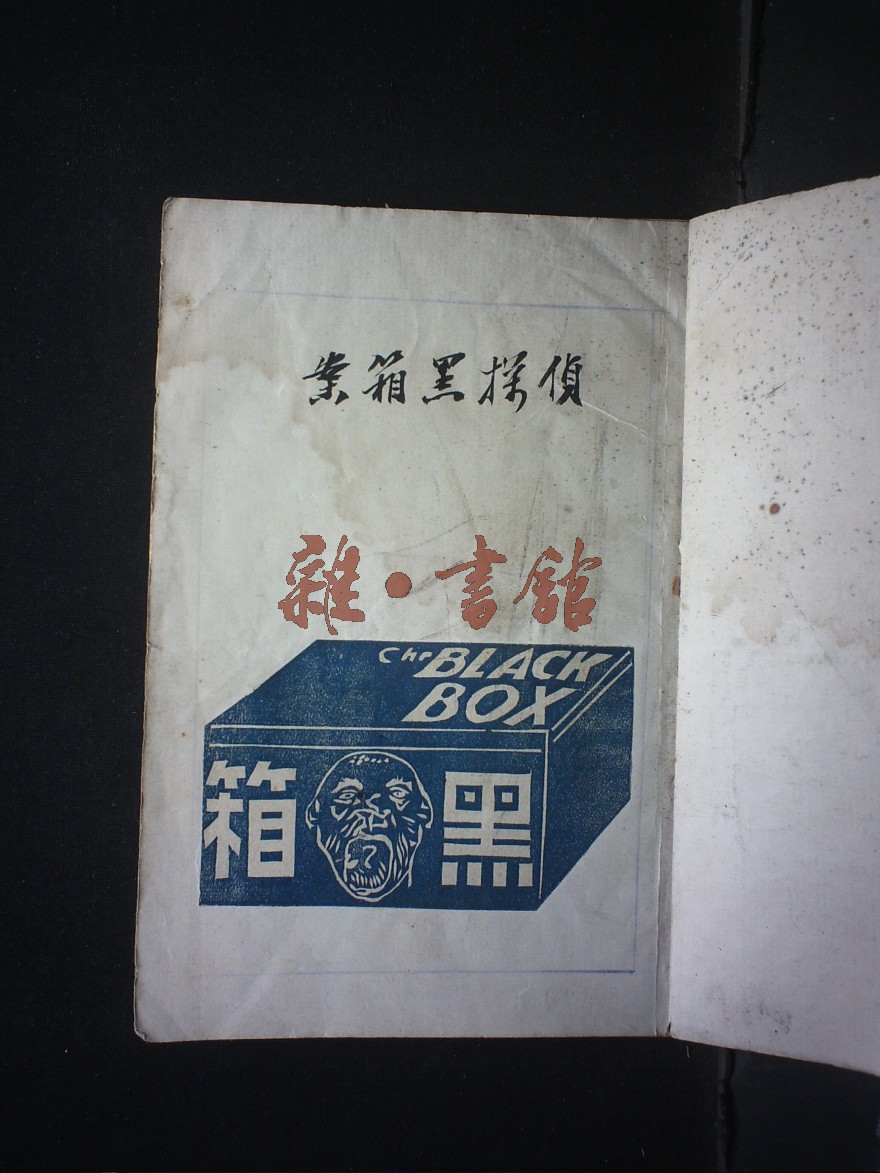 偵探黑箱案
雜·書館
The BLACK
BOX
黑箱